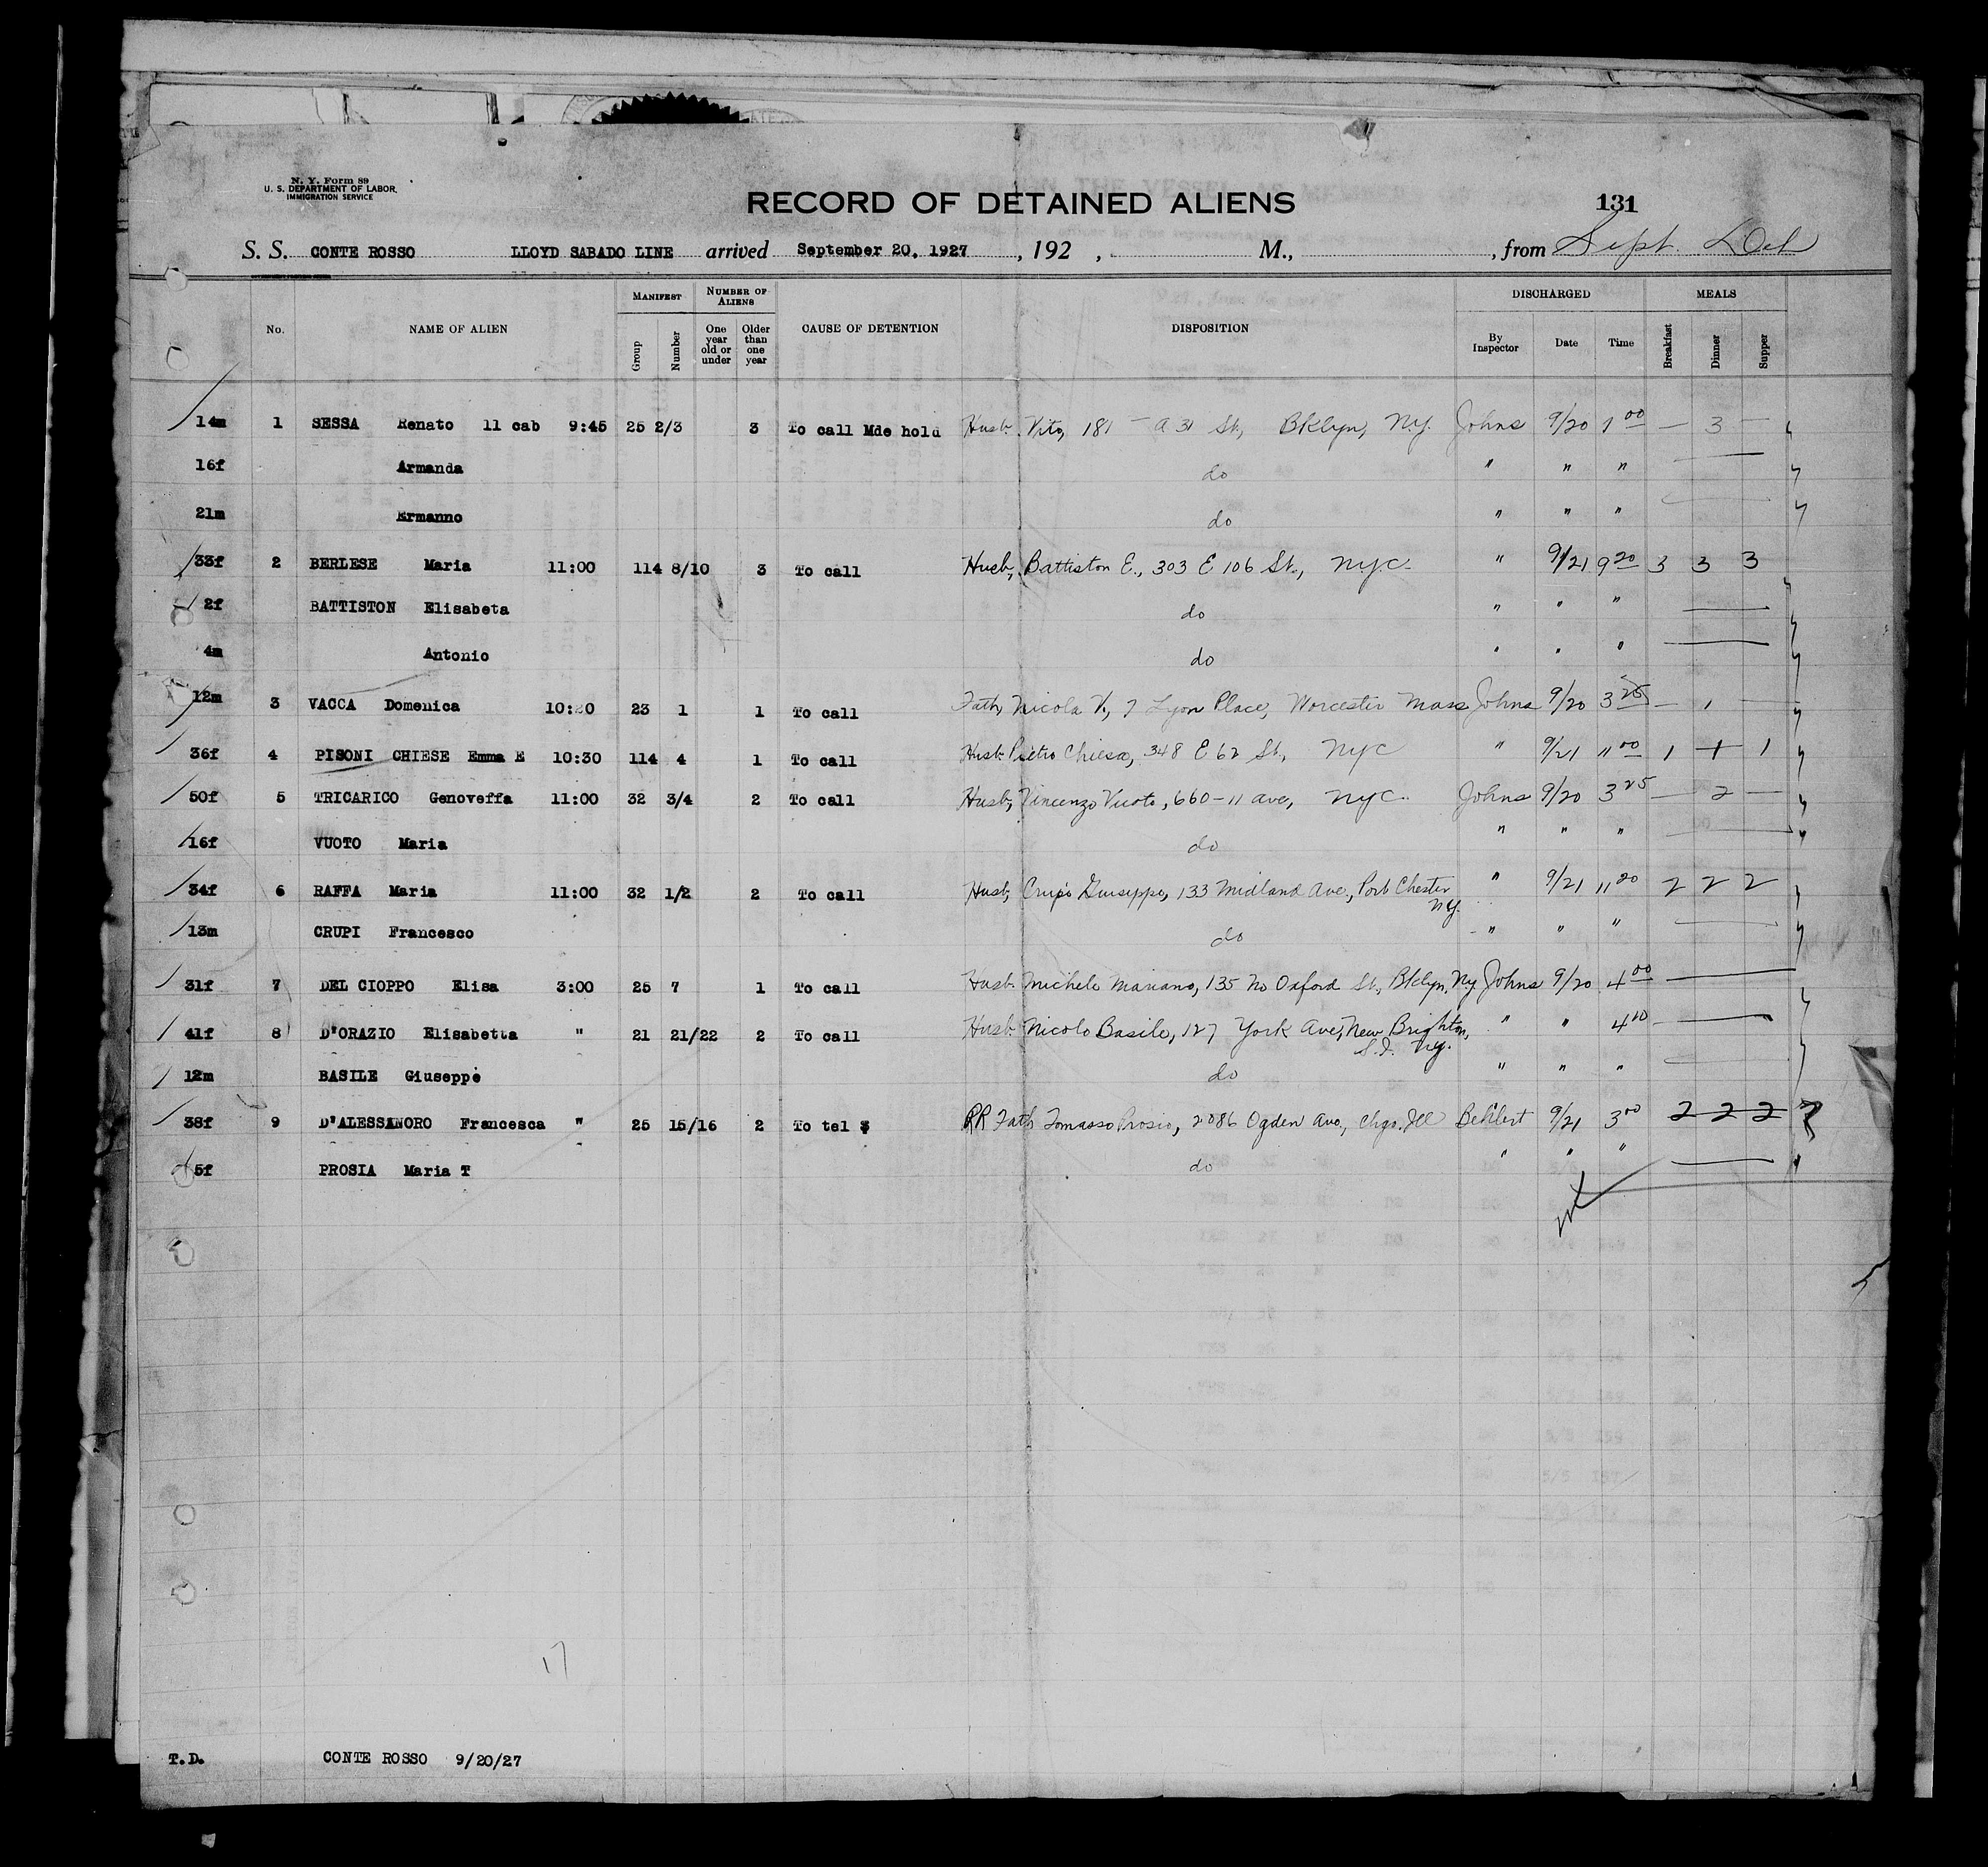 N. Y. Form 89
U. S. DEPARTMENT OF LABOR,
IMMIGRATION SERVICE
RECORD OF DETAINED ALIENS
131
S. S. CONTE ROSSO LLOYD SABADO LINE arrived September 20, 1927 , 192 , M., , from Sept. Del
No. NAME OF ALIEN MANIFEST Group Number NUMBER OF ALIENS One year old or under Older than one year CAUSE OF DETENTION DISPOSITION DISCHARGED By Inspector Date Time MEALS Breakfast Dinner Supper
14m 1 SESSA Renato 11 cab 9:45 25 2/3 3 To call Mde hold Husb. Vito, 181 - a 31 St, Bklyn, NY. Johns 9/20 1 00 — 3 —
16f Armanda do " " "
21m Ermanno do " " "
33f 2 BERLESE Maria 11:00 114 8/10 3 To call Husb, Battiston E., 303 E 106 St., NYC. " 9/21 9 20 3 3 3
2f BATTISTON Elisabeta do " " "
4m Antonio do " " "
12m 3 VACCA Domenica 10:20 23 1 1 To call Fath, Nicola V, 7 Lyon Place, Worcester Mass Johns 9/20 3 25 — 1 —
36f 4 PISONI CHIESE Emma E 10:30 114 4 1 To call Husb. Pietro Chiesa, 348 E 62 St, NYC " 9/21 11 00 1 1 1
50f 5 TRICARICO Genoveffa 11:00 32 3/4 2 To call Husb, Vincenzo Vuoto, 660-11 ave, NYC. Johns 9/20 3 25 — 2 —
16f VUOTO Maria do " " "
34f 6 RAFFA Maria 11:00 32 1/2 2 To call Husb, Crupi Giuseppe, 133 Midland Ave., Port Chester NY. " 9/21 11 20 2 2 2
13m CRUPI Francesco do " " "
31f 7 DEL CIOPPO Elisa 3:00 25 7 1 To call Husb. Michele Mariano, 135 No Oxford St., Bklyn, NY Johns 9/20 4 00
41f 8 D'ORAZIO Elisabetta " 21 21/22 2 To call Husb. Nicolo Basile, 127 York Ave, New Brighton, S.I. NY. " " 4 10
12m BASILE Giuseppe do " " "
38f 9 D'ALESSANDRO Francesca " 25 15/16 2 To tel $ RR Fath Tomasso Prosio, 2086 Ogden Ave., Chgo. Ill 9/21 3 00 2 2 2
5f PROSIA Maria T do " " "
17
T.D. CONTE ROSSO 9/20/27